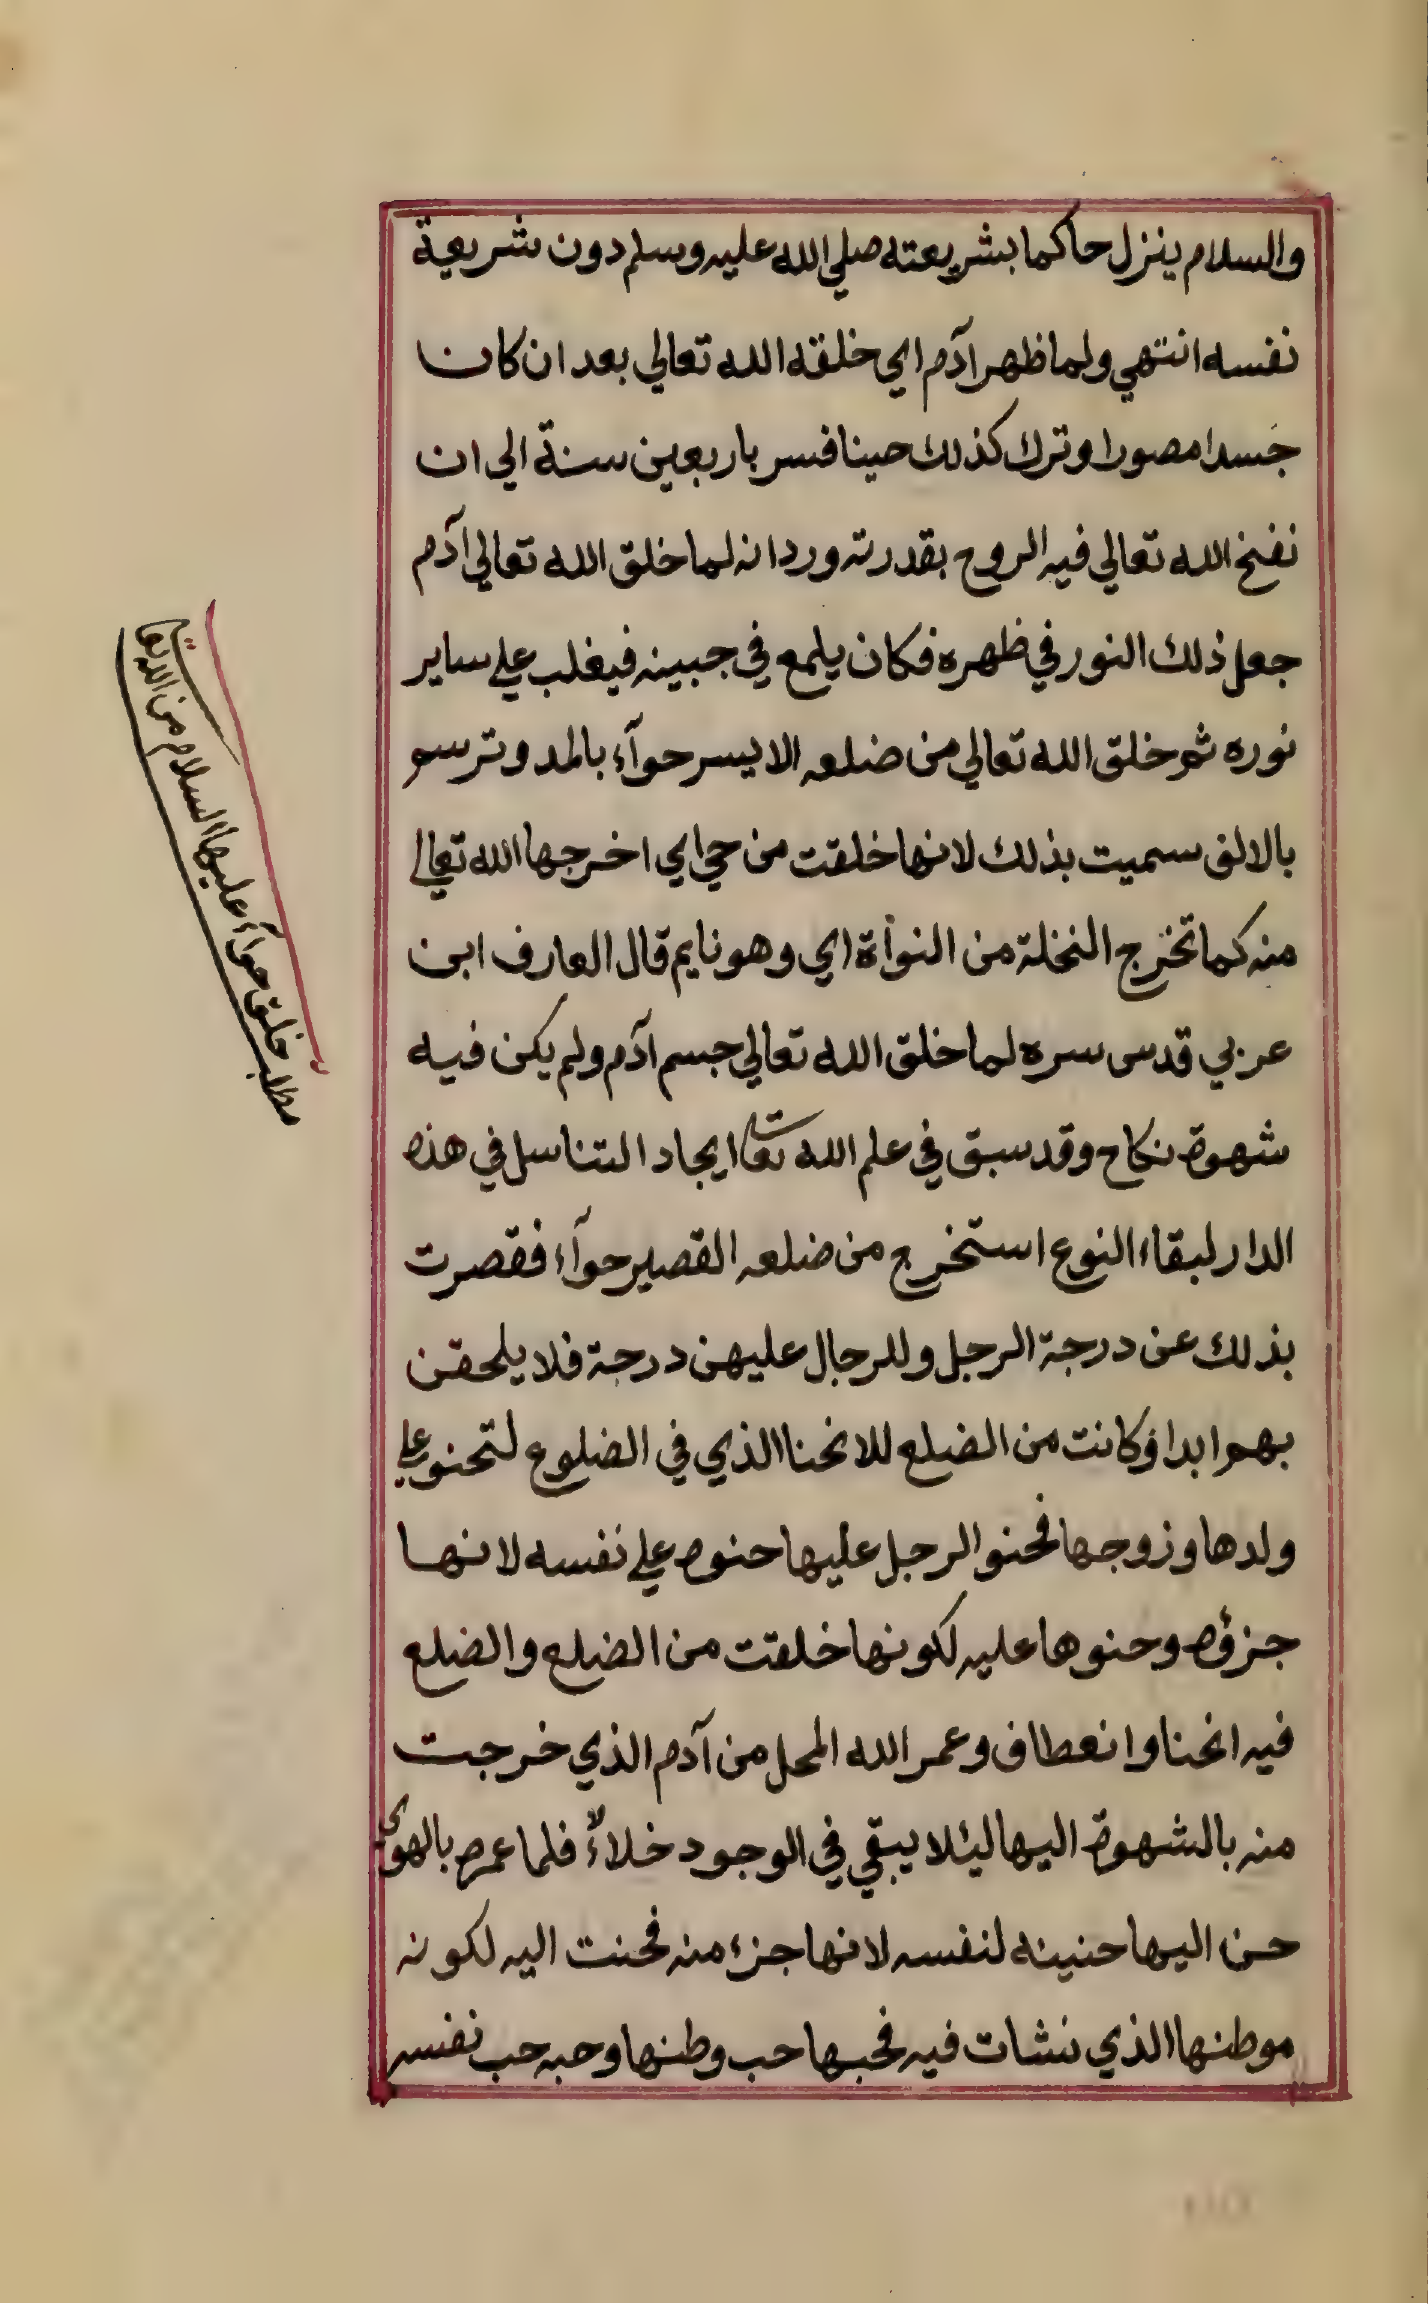 والسلام ينزل حاكما بشريعته صلي الله عليه وسلم دون شريعة
نفسه انتهي ولما ظهر آدم اي خلقه الله تعالي بعد ان كان
جسدا مصورا وترك كذلك حينا فسر باربعين سنة الي ان
نفخ الله تعالي فيه الروح بقدرته ورد انه لما خلق الله تعالي آدم
جعل ذلك النور في ظهره فكان يلمع في جبينه فيغلب علي ساير
نوره ثم خلق الله تعالي من ضلعه الايسر حوآء بالمد وترسم
بالالف سميت بذلك لانها خلقت من حي اي اخرجها الله تعالي
منه كما تخرج النخلة من النوأة اي وهو نايم قال العارف ابن
عربي قدس سره لما خلق الله تعالي جسم آدم ولم يكن فيه
شهوة نكاح وقد سبق في علم الله تعا ايجاد التناسل في هذه
الدار لبقاء النوع استخرج من ضلعه القصير حوآء فقصرت
بذلك عن درجة الرجل وللرجال عليهن درجة فلا يلحقن
بهم ابدا وكانت من الضلع للانحنا الذي في الضلوع لتحنو علي
ولدها وزوجها فحنو الرجل عليها حنوه علي نفسه لانها
جزؤه وحنوها عليه لكونها خلقت من الضلع والضلع
فيه انحنا وانعطاف وعمر الله المحل من آدم الذي خرجت
منه بالشهوة اليها ليئلا يبقي في الوجود خلاءً فلما عمره بالهوي
حن اليها حنينه لنفسه لانها جزء منه فحنت اليه لكونه
موطنها الذي نشات فيه فحبها حب وطنها وحبه حب نفسه
مطلب خلق حوآء عليها السلام من الله تعا